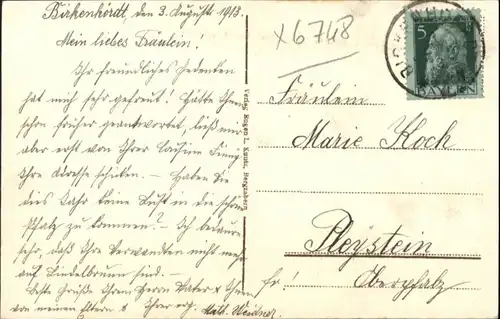 Birkenhördt, den 3. August 1913.
Mein liebes Fräulein!
Ihr freundliches Gedenken
hat mich sehr gefreut! Hätte Ihnen
schon früher geantwortet, ließ mir
aber erst von Ihrer Cousine
Ihre Adresse schicken. — Haben Sie
dies Jahr keine Lust in die schöne
Pfalz zu kommen? — Ich bedaure
sehr, daß Ihre Verwandten nicht mehr
auf Lindelbrunn sind. —
Beste Grüße Ihrem Herrn Vater & Ihnen
von meinen Eltern & Ihrer erg. Math. Weidner
Verlag Eugen L. Kautz, Bergzabern
x6748
5
BAYERN
Fräulein
Marie Koch
Pleystein
Oberpfalz